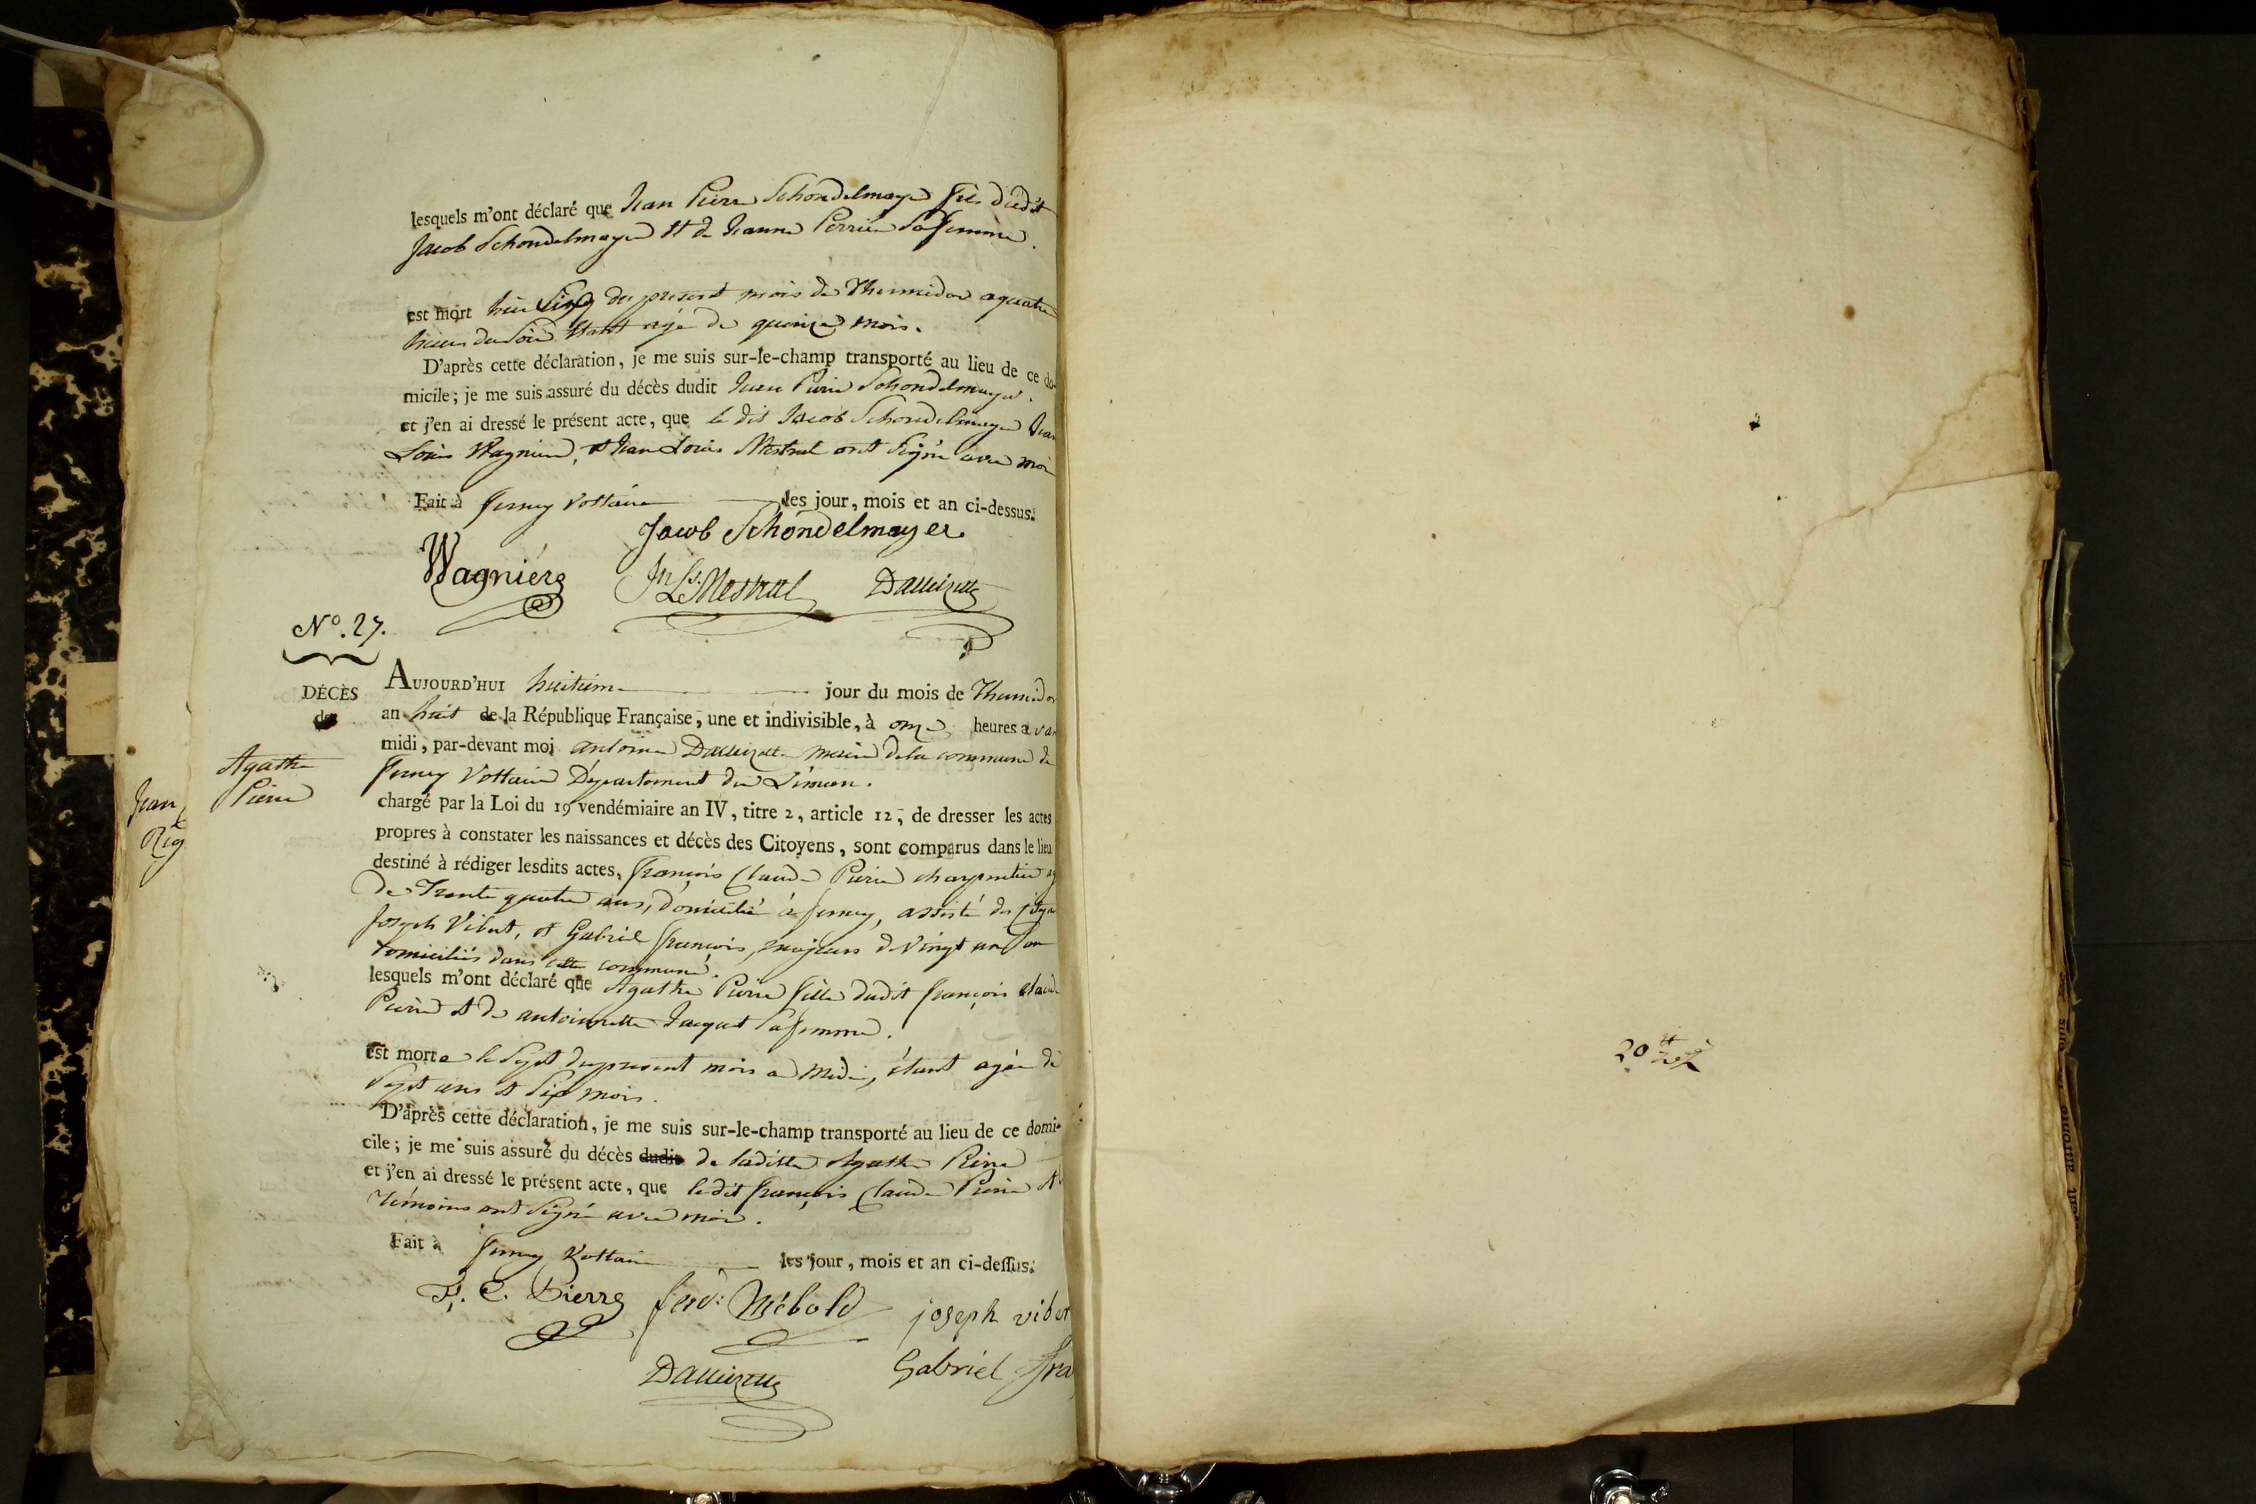 lesquels m'ont déclaré que Jean Pierre Schondelmayer fils dudit
Jacob Schondelmayer et de Jeanne Perrier sa femme.
est mort hier Cinq du present mois de Thermidor a quatre
heures du Soir étant agé de quinze mois.
D'après cette déclaration, je me suis sur-le-champ transporté au lieu de ce do-
micile; je me suis assuré du décès dudit Jean Pierre Schondelmayer.
et j'en ai dressé le présent acte, que le dit Jacob Schondelmayer Jean
Louis Wagniere, et Jean Louis Mestral ont Signé avec moi
Fait à ferney Voltaire les jour, mois et an ci-dessus.
Jacob Schondelmayer
Wagnière Jn Ls. Mestral Dallizette
No. 27.
DÉCÈS
de
Agathe
Pierre
Jean
Rig
AUJOURD'HUI huitieme jour du mois de Thermidor
an huit de la République Française, une et indivisible, à onze heures avan
midi, par-devant moi antoine Dallizette maire de la commune de
ferney Voltaire Département du Léman.
chargé par la Loi du 19 vendémiaire an IV, titre 2, article 12, de dresser les actes
propres à constater les naissances et décès des Citoyens, sont comparus dans le lieu
destiné à rédiger lesdits actes, françois Claude Pierre charpentier ag
de Trente quatre ans, domicilié à ferney, assisté des citoyens
Joseph Vibert, et Gabriel françois, majeurs de vingt un an
domiciliés dans cette commune.
lesquels m'ont déclaré que Agathe Pierre fille dudit françois claude
Pierre et de antoinette Jaquet sa femme.
est morte le Sept du present mois a midi, étant agée de
Sept ans et Six mois.
D'après cette déclaration, je me suis sur-le-champ transporté au lieu de ce domi-
cile; je me suis assuré du décès dudit de laditte Agathe Pierre
et j'en ai dressé le présent acte, que ledit françois Claude Pierre et
Témoins ont Signé avec moi.
Fait à ferney Voltaire les jour, mois et an ci-dessus.
F. C. Pierre ferd: Mébold joseph vibert
Dallizette Gabriel fra
20